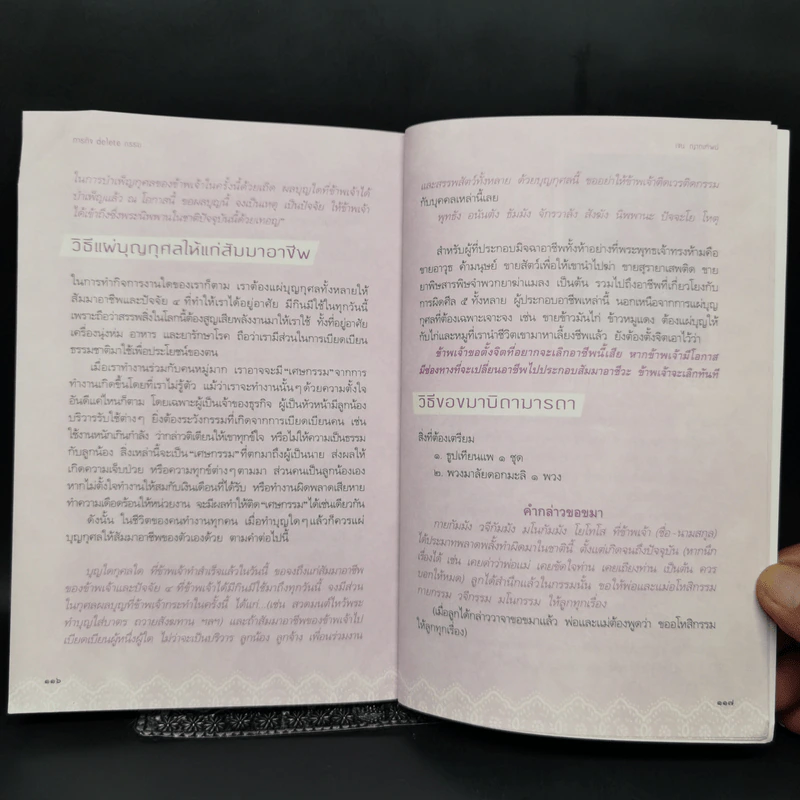 ภารกิจ delete กรรม
ในการบำเพ็ญกุศลของข้าพเจ้าในครั้งนี้ด้วยเถิด ผลบุญใดที่ข้าพเจ้าได้
บำเพ็ญแล้ว ณ โอกาสนี้ ขอผลบุญนี้ จงเป็นเหตุ เป็นปัจจัย ให้ข้าพเจ้า
ได้เข้าถึงซึ่งพระนิพพานในชาติปัจจุบันนี้ด้วยเทอญ"
วิธีแผ่บุญกุศลให้แก่สัมมาอาชีพ
ในการทำกิจการงานใดของเราก็ตาม เราต้องแผ่บุญกุศลทั้งหลายให้
สัมมาอาชีพและปัจจัย ๔ ที่ทำให้เราได้อยู่อาศัย มีกินมีใช้ในทุกวันนี้
เพราะถือว่าสรรพสิ่งในโลกนี้ต้องสูญเสียพลังงานมาให้เราใช้ ทั้งที่อยู่อาศัย
เครื่องนุ่งห่ม อาหาร และยารักษาโรค ถือว่าเรามีส่วนในการเบียดเบียน
ธรรมชาติมาใช้เพื่อประโยชน์ของตน
เมื่อเราทำงานร่วมกับคนหมู่มาก เราอาจจะมี "เศษกรรม" จากการ
ทำงานเกิดขึ้นโดยที่เราไม่รู้ตัว แม้ว่าเราจะทำงานนั้นๆ ด้วยความตั้งใจ
อันดีแค่ไหนก็ตาม โดยเฉพาะผู้เป็นเจ้าของธุรกิจ ผู้เป็นหัวหน้ามีลูกน้อง
บริวารรับใช้ต่างๆ ยิ่งต้องระวังกรรมที่เกิดจากการเบียดเบียนคน เช่น
ใช้งานหนักเกินกำลัง ว่ากล่าวติเตียนให้เขาทุกข์ใจ หรือไม่ให้ความเป็นธรรม
กับลูกน้อง สิ่งเหล่านี้จะเป็น "เศษกรรม" ที่ตกมาถึงผู้เป็นนาย ส่งผลให้
เกิดความเจ็บป่วย หรือความทุกข์ต่างๆ ตามมา ส่วนคนเป็นลูกน้องเอง
หากไม่ตั้งใจทำงานให้สมกับเงินเดือนที่ได้รับ หรือทำงานผิดพลาดเสียหาย
ทำความเดือดร้อนให้หน่วยงาน จะมีผลทำให้ติด "เศษกรรม" ได้เช่นเดียวกัน
ดังนั้น ในชีวิตของคนทำงานทุกคน เมื่อทำบุญใดๆ แล้วก็ควรแผ่
บุญกุศลให้สัมมาอาชีพของตัวเองด้วย ตามคำต่อไปนี้
บุญใดกุศลใด ที่ข้าพเจ้าทำสำเร็จแล้วในวันนี้ ขอจงถึงแก่สัมมาอาชีพ
ของข้าพเจ้าและปัจจัย ๔ ที่ข้าพเจ้าได้มีกินมีใช้มาถึงทุกวันนี้ จงมีส่วน
ในกุศลผลบุญที่ข้าพเจ้ากระทำในครั้งนี้ ได้แก่...(เช่น สวดมนต์ไหว้พระ
ทำบุญใส่บาตร ถวายสังฆทาน ฯลฯ) และถ้าสัมมาอาชีพของข้าพเจ้าไป
เบียดเบียนผู้หนึ่งผู้ใด ไม่ว่าจะเป็นบริวาร ลูกน้อง ลูกจ้าง เพื่อนร่วมงาน
๑๑๖
เจน
และสรรพสัตว์ทั้งหลาย ด้วยบุญกุศลนี้ ขออย่าให้ข้าพเจ้าติดเวรติดกรรม
กับบุคคลเหล่านี้เลย
พุทธัง อนันตัง ธัมมัง จักรวาลัง สังฆัง นิพพานะ ปัจจะโย โหตุ
สำหรับผู้ที่ประกอบมิจฉาอาชีพทั้งห้าอย่างที่พระพุทธเจ้าทรงห้ามคือ
ขายอาวุธ ค้ามนุษย์ ขายสัตว์เพื่อให้เขานำไปฆ่า ขายสุรายาเสพติด ขาย
ยาพิษสารพิษจำพวกยาฆ่าแมลง เป็นต้น รวมไปถึงอาชีพที่เกี่ยวโยงกับ
การผิดศีล ๕ ทั้งหลาย ผู้ประกอบอาชีพเหล่านี้ นอกเหนือจากการแผ่บุญ
กุศลที่ต้องเฉพาะเจาะจง เช่น ขายข้าวมันไก่ ข้าวหมูแดง ต้องแผ่บุญให้
กับไก่และหมูที่เรานำชีวิตเขามาหาเลี้ยงชีพแล้ว ยังต้องตั้งจิตเอาไว้ว่า
ข้าพเจ้าขอตั้งจิตที่อยากจะเลิกอาชีพนี้เสีย หากข้าพเจ้ามีโอกาส
มีช่องทางที่จะเปลี่ยนอาชีพไปประกอบสัมมาอาชีวะ ข้าพเจ้าจะเลิกทันที
วิธีขอขมาบิดามารดา
สิ่งที่ต้องเตรียม
๑. ธูปเทียนแพ ๑ ชุด
๒. พวงมาลัยดอกมะลิ ๑ พวง
คำกล่าวขอขมา
กายกัมมัง วจีกัมมัง มโนกัมมัง โยโทโส ที่ข้าพเจ้า (ชื่อ-นามสกุล)
ได้ประมาทพลาดพลั้งทำผิดมาในชาตินี้ ตั้งแต่เกิดจนถึงปัจจุบัน (หากนึก
เรื่องได้ เช่น เคยด่าว่าพ่อแม่ เคยขัดใจท่าน เคยเถียงท่าน เป็นต้น ควร
บอกให้หมด) ลูกได้สำนึกแล้วในกรรมนั้น ขอให้พ่อและแม่อโหสิกรรม
กายกรรม วจีกรรม มโนกรรม ให้ลูกทุกเรื่อง
(เมื่อลูกได้กล่าววาจาขอขมาแล้ว พ่อและแม่ต้องพูดว่า ขออโหสิกรรม
ให้ลูกทุกเรื่อง)
๑๑๗